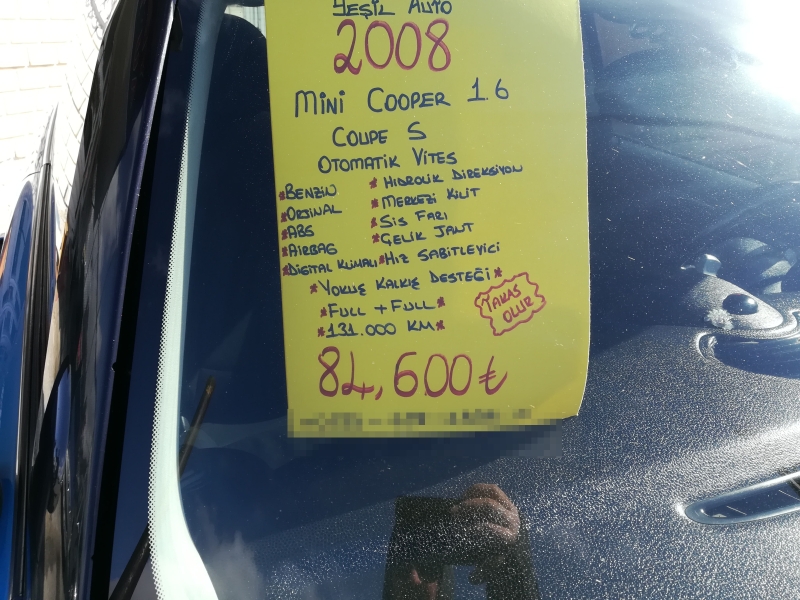 YEŞİL AUTO
2008
MiNi COOPER 1.6
COUPE S
OTOMATİK VİTES
*BENZİN
*ORJİNAL
*ABS
*AIRBAG
*DİGİTAL KLİMALI
*HIDROLİK DİREKSİYON
*MERKEZİ KİLİT
*SİS FARI
*ÇELİK JANT
*HIZ SABİTLEYİCİ
*YOKUŞ KALKIŞ DESTEĞİ*
*FULL + FULL*
*131.000 KM*
TAKAS
OLUR
84,600₺